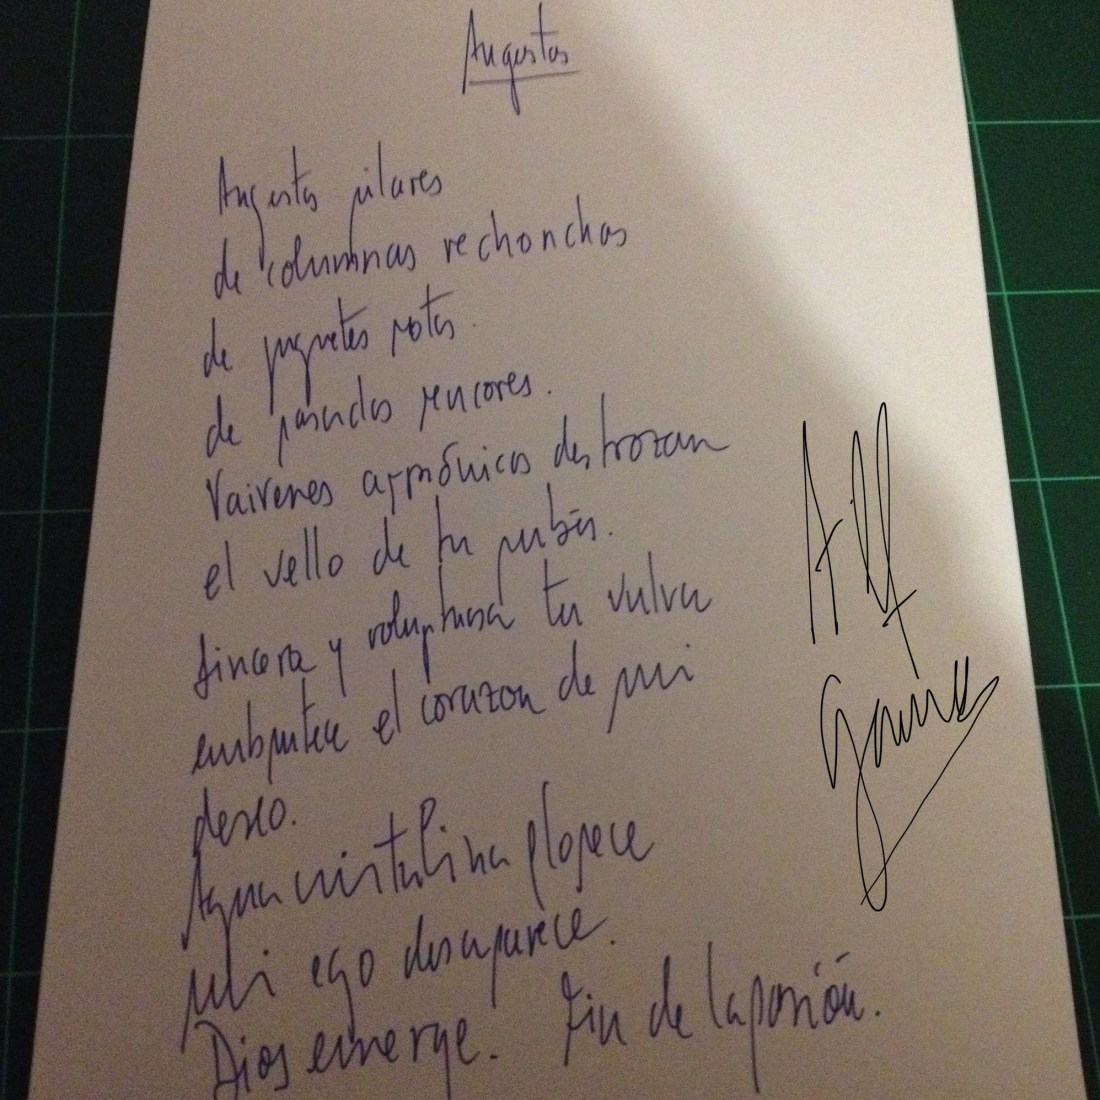 Angostos
Angostos pilares
de columnas rechonchas
de juguetes rotos.
de pasados rencores.
Vaivenes armónicos destrozan
el vello de tu pubis.
sincera y voluptuosa tu vulva
embrutece el corazon de mi
deseo.
Agua cristalina florece
mi ego desaparece.
Dios emerge. Fin de la pasión.